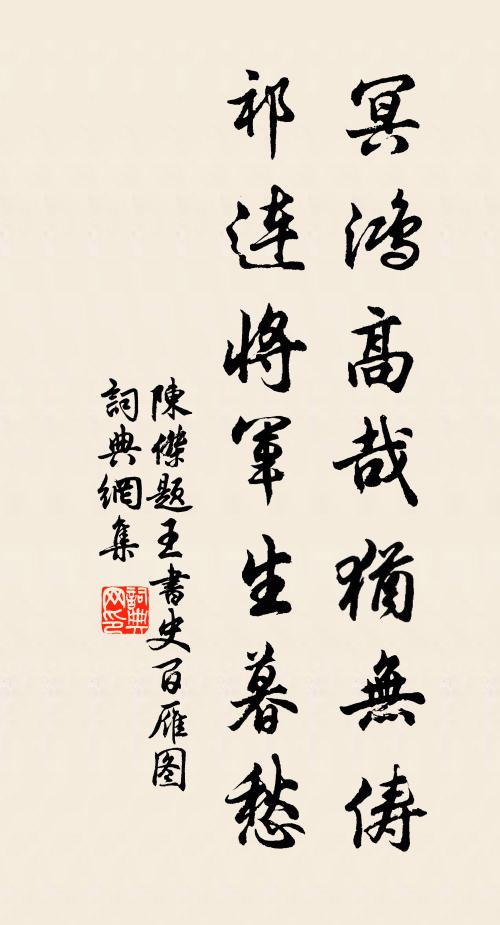 冥鴻高哉猶無儔
祁連將軍生暮愁
陳傑題王書史百雁图
詞典網集
詞典网印